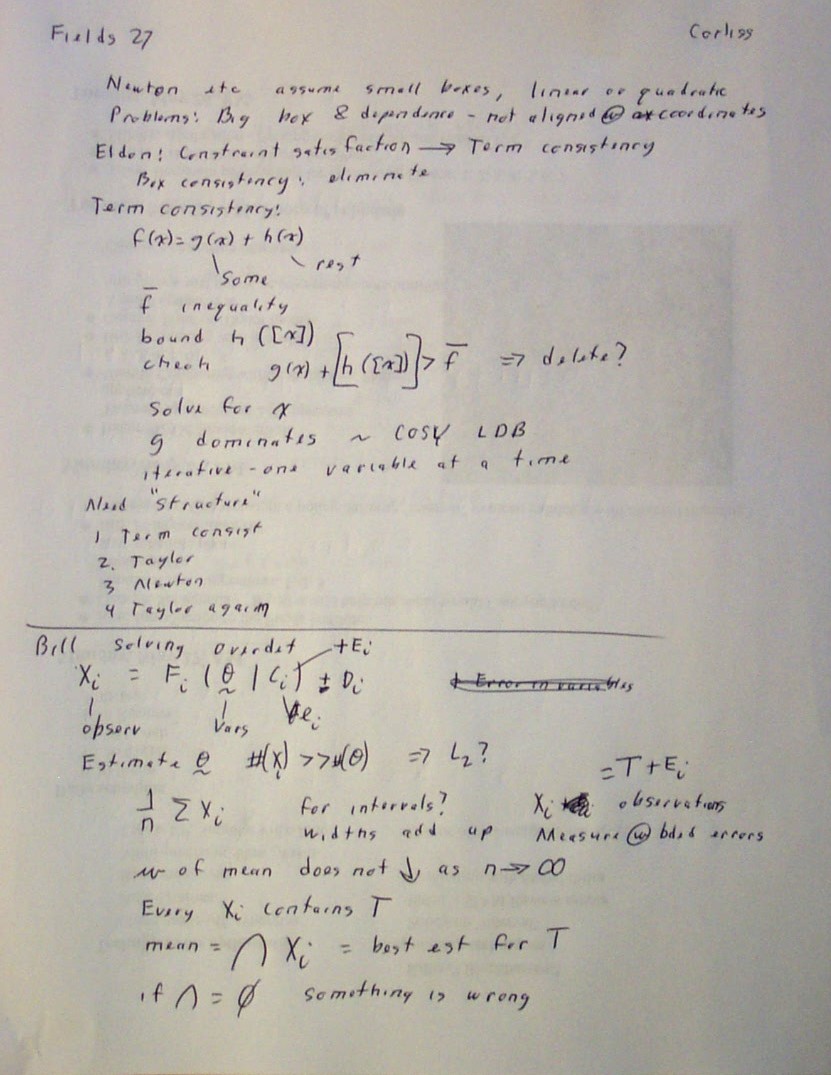 Fields 27 Corliss
Newton etc assume small boxes, linear or quadratic
Problems: Big box & dependence - not aligned @ coordinates
Eldon: Constraint satisfaction → Term consistency
Box consistency: eliminate
Term consistency:
f(x) = g(x) + h(x)
some rest
f̅ inequality
bound h ([x])
check g(x) + [h ([x])] > f̅ ⇒ delete?
Solve for x
g dominates ~ COSY LDB
iterative - one variable at a time
Need "structure"
1 Term consist
2. Taylor
3 Newton
4 Taylor again
Bill solving overdet +Ei
Xi = Fi (θ | Ci) ± Di
Error in variables
observ Vars ei
Estimate θ #(Xi) >> #(θ) ⇒ L2?
= T + Ei
1/n Σ Xi for intervals? Xi observations
widths add up Measure @ bdd errors
w of mean does not ↓ as n → ∞
Every Xi contains T
mean = ∩ Xi = best est for T
if ∩ = ∅ something is wrong